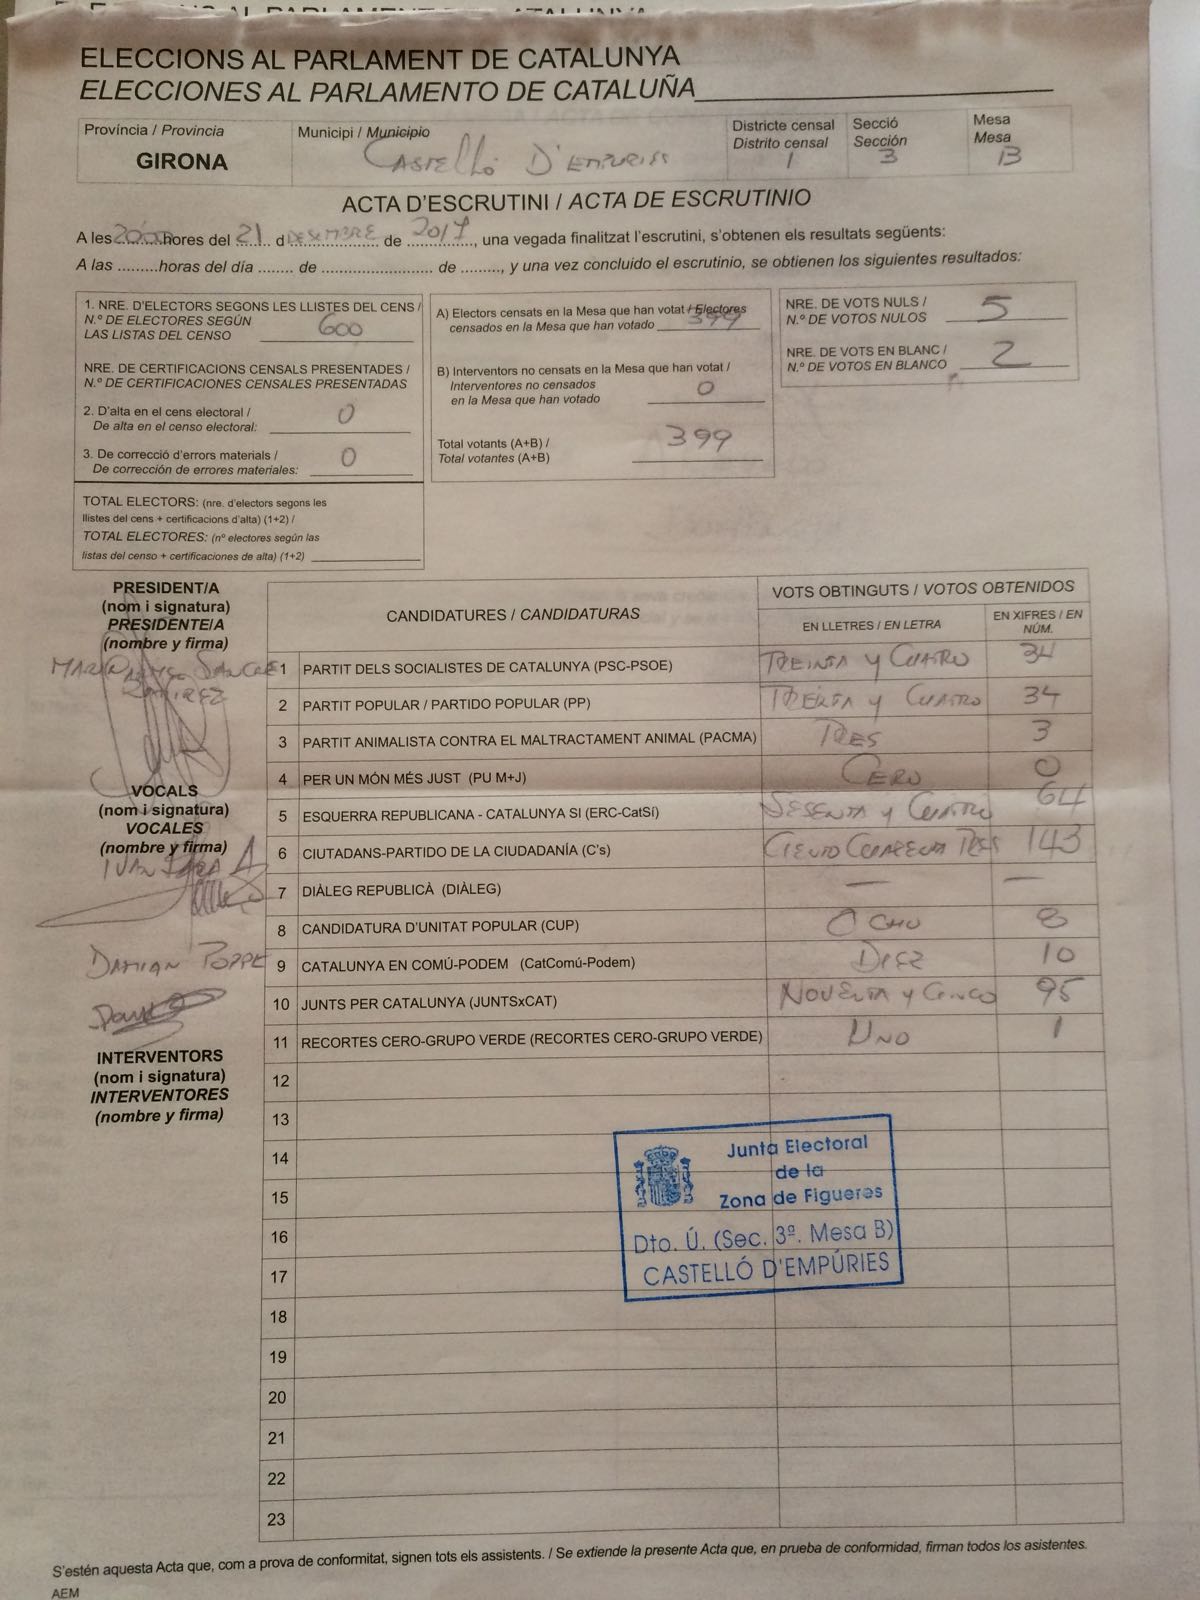 ELECCIONS AL PARLAMENT DE CATALUNYA
ELECCIONES AL PARLAMENTO DE CATALUÑA
Província / Provincia
GIRONA
Municipi / Municipio
CASTELLÓ D'EMPURIES
Districte censal
Distrito censal
1
Secció
Sección
3
Mesa
Mesa
B
ACTA D'ESCRUTINI / ACTA DE ESCRUTINIO
A les 2000 hores del 21 d DESEMBRE de 2017, una vegada finalitzat l'escrutini, s'obtenen els resultats següents:
A las .........horas del día ........ de ........................... de ........., y una vez concluido el escrutinio, se obtienen los siguientes resultados:
1. NRE. D'ELECTORS SEGONS LES LLISTES DEL CENS /
N.º DE ELECTORES SEGÚN
LAS LISTAS DEL CENSO 600
NRE. DE CERTIFICACIONS CENSALS PRESENTADES /
N.º DE CERTIFICACIONES CENSALES PRESENTADAS
2. D'alta en el cens electoral /
De alta en el censo electoral: 0
3. De correcció d'errors materials /
De corrección de errores materiales: 0
TOTAL ELECTORS: (nre. d'electors segons les
llistes del cens + certificacions d'alta) (1+2) /
TOTAL ELECTORES: (nº electores según las
listas del censo + certificaciones de alta) (1+2)
A) Electors censats en la Mesa que han votat / Electores
censados en la Mesa que han votado 399
B) Interventors no censats en la Mesa que han votat /
Interventores no censados
en la Mesa que han votado 0
Total votants (A+B) /
Total votantes (A+B) 399
NRE. DE VOTS NULS /
N.º DE VOTOS NULOS 5
NRE. DE VOTS EN BLANC /
N.º DE VOTOS EN BLANCO 2
PRESIDENT/A
(nom i signatura)
PRESIDENTE/A
(nombre y firma)
SANCHEZ
RAMIREZ
VOCALS
(nom i signatura)
VOCALES
(nombre y firma)
IVAN
DAMIAN POPPE
INTERVENTORS
(nom i signatura)
INTERVENTORES
(nombre y firma)
CANDIDATURES / CANDIDATURAS
VOTS OBTINGUTS / VOTOS OBTENIDOS
EN LLETRES / EN LETRA
EN XIFRES / EN
NÚM.
1 PARTIT DELS SOCIALISTES DE CATALUNYA (PSC-PSOE) TREINTA Y CUATRO 34
2 PARTIT POPULAR / PARTIDO POPULAR (PP) TREINTA Y CUATRO 34
3 PARTIT ANIMALISTA CONTRA EL MALTRACTAMENT ANIMAL (PACMA) TRES 3
4 PER UN MÓN MÉS JUST (PU M+J) CERO 0
5 ESQUERRA REPUBLICANA - CATALUNYA SI (ERC-CatSí) SESENTA Y CUATRO 64
6 CIUTADANS-PARTIDO DE LA CIUDADANÍA (C's) CIENTO CUARENTA TRES 143
7 DIÀLEG REPUBLICÀ (DIÀLEG) — —
8 CANDIDATURA D'UNITAT POPULAR (CUP) OCHO 8
9 CATALUNYA EN COMÚ-PODEM (CatComú-Podem) DIEZ 10
10 JUNTS PER CATALUNYA (JUNTSxCAT) NOVENTA Y CINCO 95
11 RECORTES CERO-GRUPO VERDE (RECORTES CERO-GRUPO VERDE) UNO 1
12
13
14
15
16
17
18
19
20
21
22
23
Junta Electoral
de la
Zona de Figueres
Dto. Ú. (Sec. 3ª. Mesa B)
CASTELLÓ D'EMPÚRIES
S'estén aquesta Acta que, com a prova de conformitat, signen tots els assistents. / Se extiende la presente Acta que, en prueba de conformidad, firman todos los asistentes.
AEM